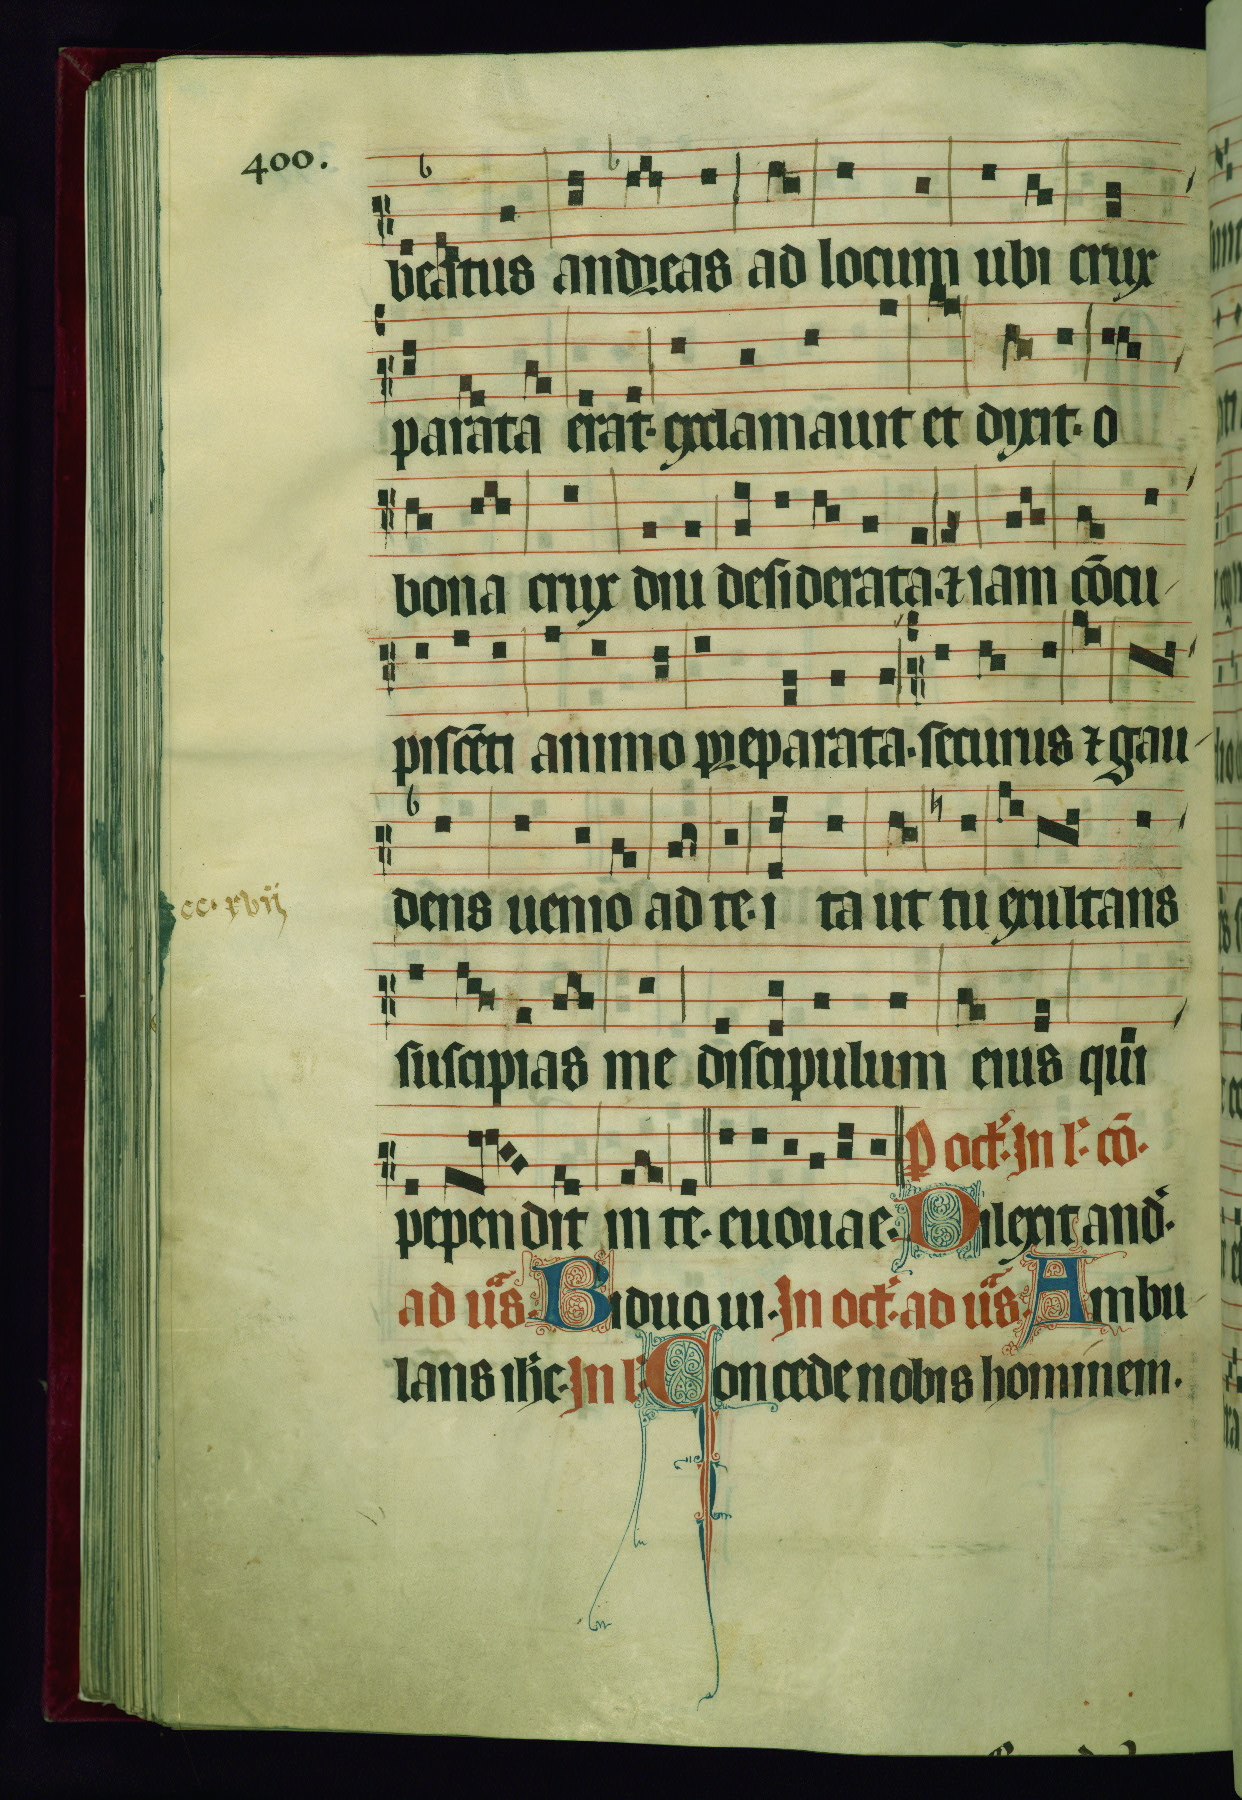 400.
beatus andreas ad locum ubi crux
parata erat· exclamauit et dixit· o
bona crux diu desiderata·⁊ iam cōcu
piscēti animo preparata·securus ⁊ gau
cc·xvij
dens uenio ad te·i ta ut tu exultans
suscipias me discipulum eius qui
pependit in te·euouae· P oct̄·In l· cō·
Dilexit and·
ad uās· Biduo ui·In oct̄·ad uās· Ambu
lans ihc·In l· Concede nobis hominem·